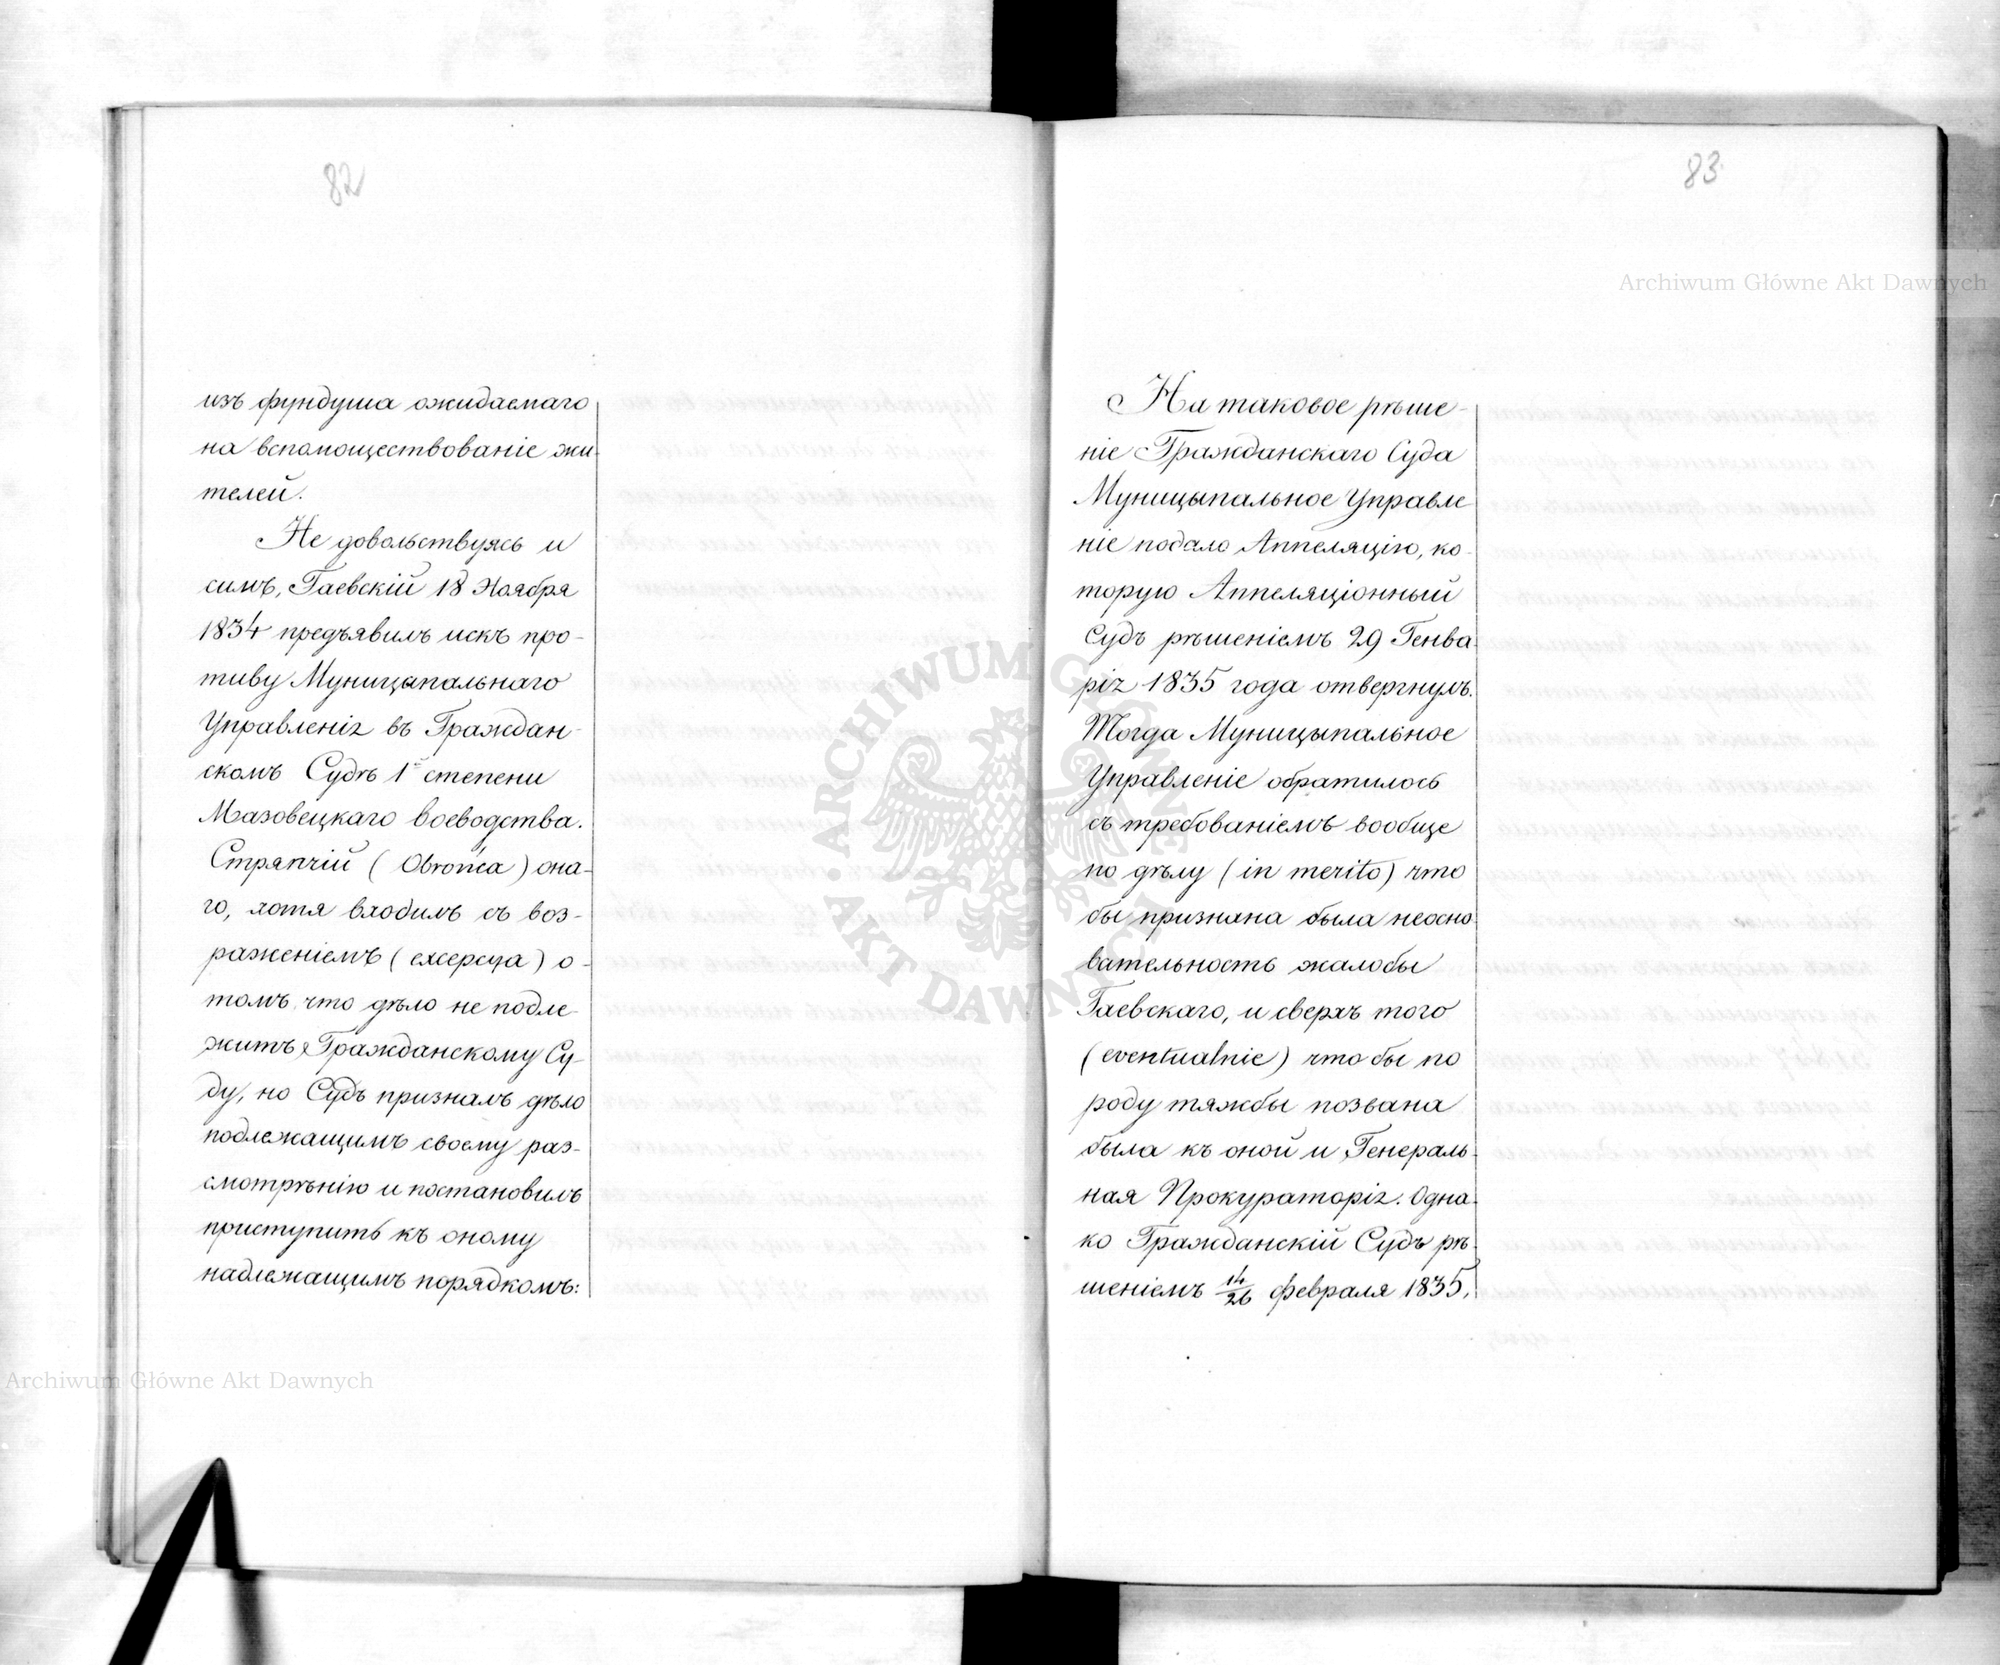 82
изъ фундуша ожидаемаго
на вспомоществованіе жи-
телей.
Не довольствуясь и
симъ, Гаевскій 18 Ноября
1834 предъявилъ искъ про-
тиву Муницыпальнаго
Управленія въ Граждан-
скомъ Судѣ 1й степени
Мазовецкаго воеводства.
Стряпчій (Obrońca) она-
го, хотя входилъ съ воз-
раженіемъ (excepcya) о-
томъ что дѣло не подле-
житъ Гражданскому Су-
ду, но Судъ призналъ дѣло
подлежащимъ своему раз-
смотрѣнію и постановилъ
приступить къ оному
надлежащимъ порядкомъ:
83
На таковое рѣше-
ніе Гражданскаго Суда
Муницыпальное Управле
ніе подало Аппеляцію, ко-
торую Аппеляціонный
Судъ рѣшеніемъ 29 Генва-
рія 1835 года отвергнулъ.
Тогда Муницыпальное
Управленіе обратилось
съ требованіемъ вообще
по дѣлу (in merito) что
бы признана была неосно-
вательность жалобы
Гаевскаго, и сверхъ того
(eventualnie) что бы по
роду тяжбы позвана
была къ оной и Генераль-
ная Прокураторія. Одна-
ко Гражданскій Судъ рѣ-
шеніемъ 14/26 февраля 1835,
Archiwum Główne Akt Dawnych
Archiwum Główne Akt Dawnych
ARCHIWUM GŁÓWNE · AKT DAWNYCH ·